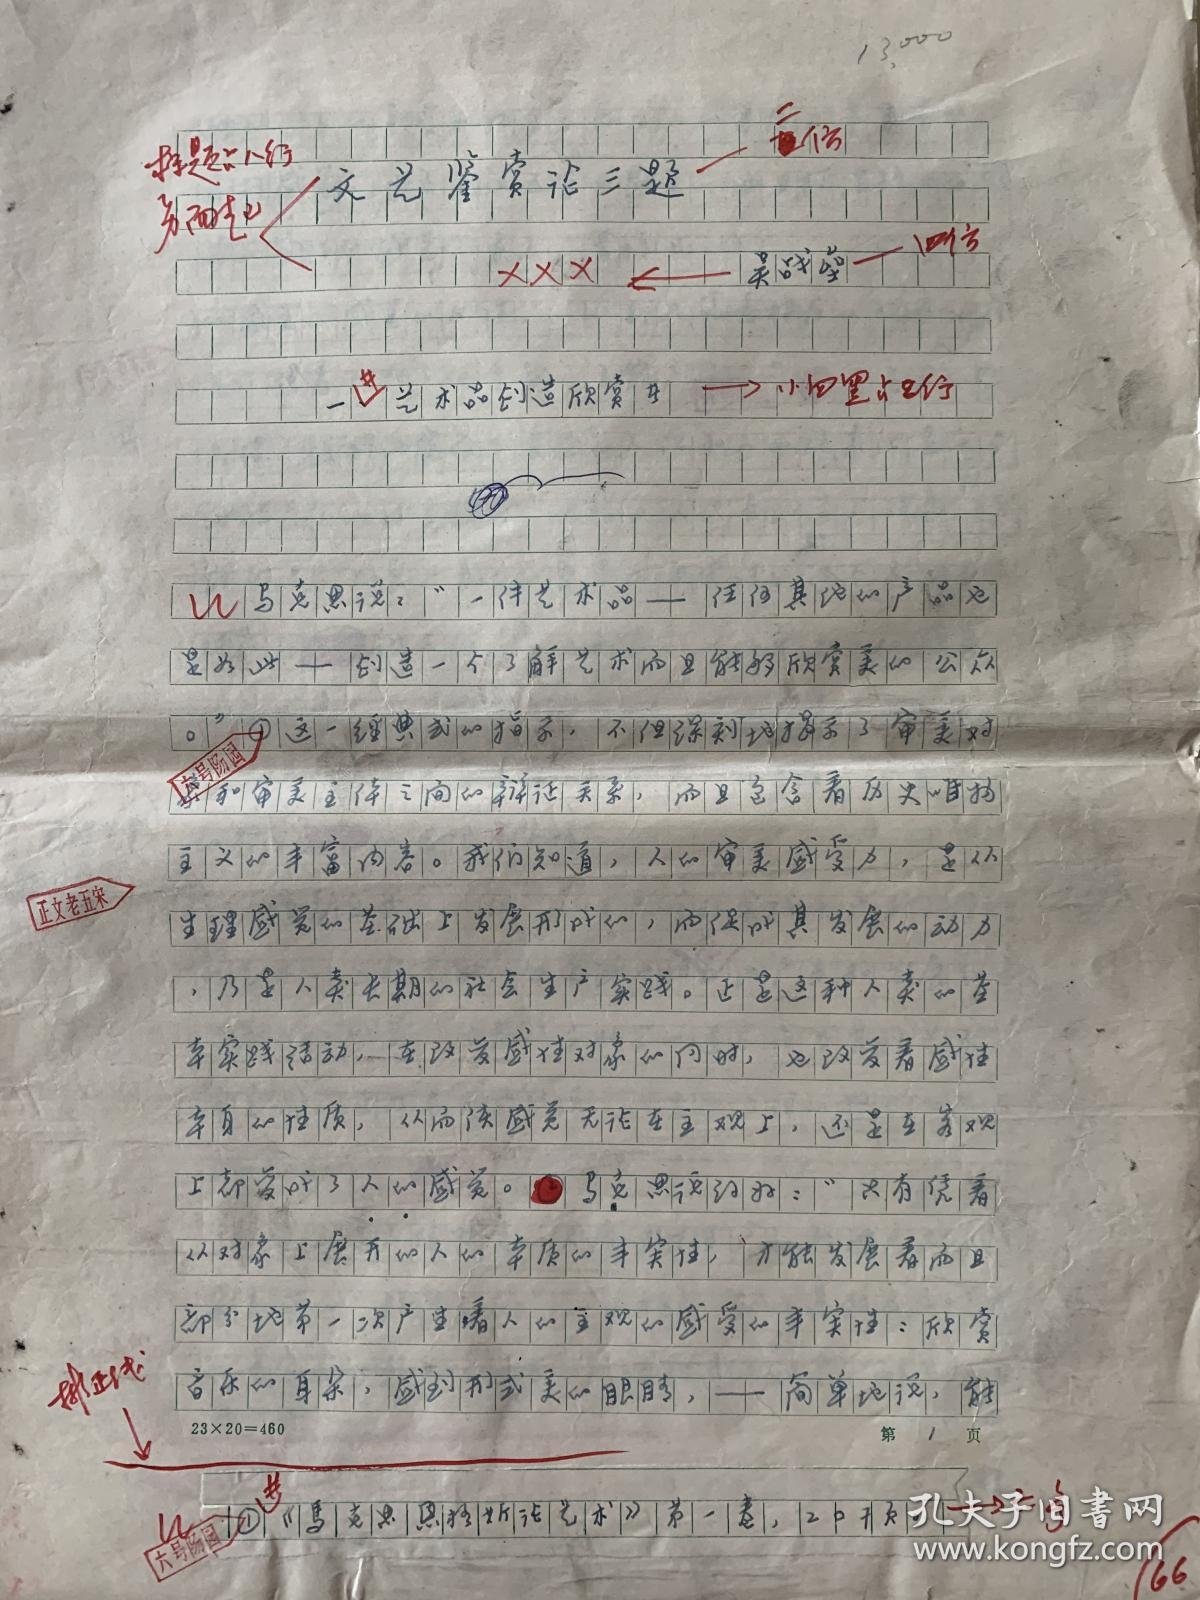 13,000
文艺鉴赏论三题
二
四仿
×××
吴战垒
一 艺术品创造欣赏者
马克思说：“一件艺术品——任何其他的产品也
是如此——创造一个了解艺术而且能够欣赏美的公众
。”①这一经典式的指示，不但深刻地揭示了审美对
象和审美主体之间的辩证关系，而且包含着历史唯物
六号阳圆
主义的丰富内容。我们知道，人的审美感受力，是从
正文老五宋
生理感觉的基础上发展形成的，而促成其发展的动力
，乃是人类长期的社会生产实践。正是这种人类的基
本实践活动，在改变感性对象的同时，也改变着感性
本身的性质，从而使感觉无论在主观上，还是在客观
上都变成了人的感觉。马克思说得好：“只有凭着
从对象上展开的人的本质的丰富性，才能发展着而且
部分地第一次产生着人的主观的感受的丰富性：欣赏
音乐的耳朵，感到形式美的眼睛，——简单地说，能
23×20=460
第1页
排正线
①《马克思恩格斯论艺术》第一卷，20页
六号阳圆
六号
166
孔夫子旧书网
www.kongfz.com